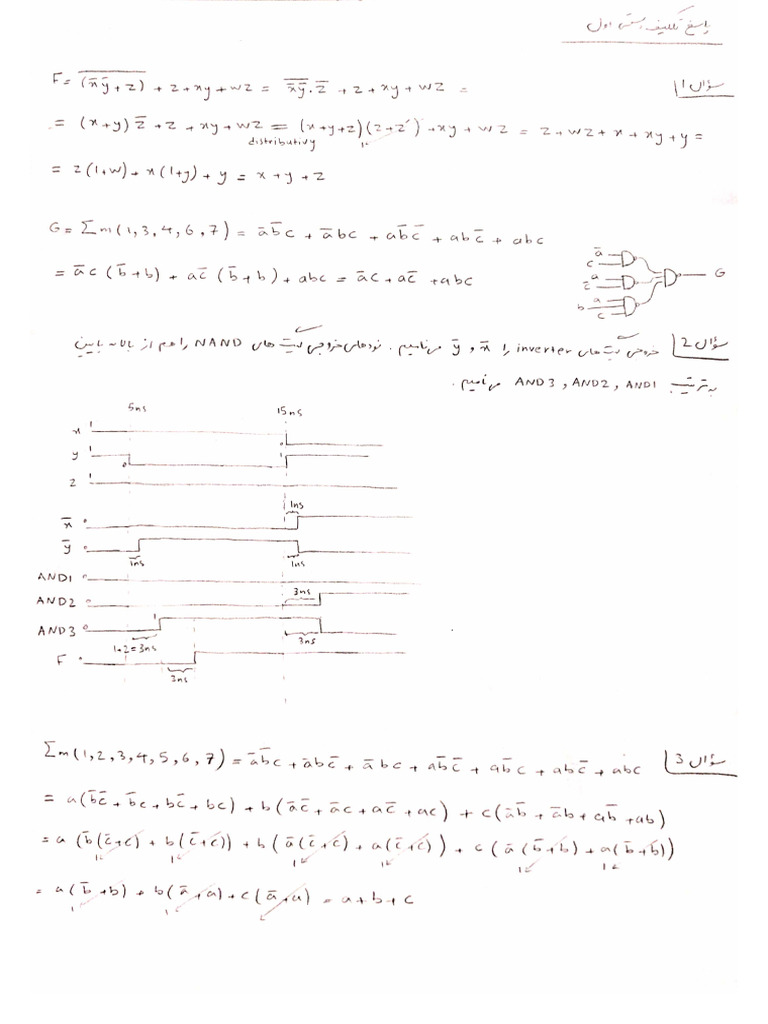 پاسخ تکلیف سری اول
سؤال 1
F = \overline{(x̄ȳ + z)} + z + xy + wz = \overline{x̄ȳ} . z̄ + z + xy + wz =
= (x+y) z̄ + z + xy + wz = (x+y+z)(z+z') + xy + wz = z + wz + x + xy + y =
distributivy 1
= z(1+w) + x(1+y) + y = x + y + z
G = Σm(1,3,4,6,7) = āb̄c + ābc + ab̄c̄ + abc̄ + abc
= āc(b̄+b) + ac̄(b̄+b) + abc = āc + ac̄ + abc
ā
c
a
c̄
a
b
c
G
سؤال 2
خروجی گیت های inverter را x̄ و ȳ می نامیم. نودهای خروجی گیت های NAND را هم از بالا به پایین
به ترتیب AND1 , AND2 , AND3 می نامیم.
5ns 15ns
x 1 0
y 1 0 1
z 1
1ns
x̄ 0
ȳ 0
1ns 1ns
AND1 0
3ns
AND2 0
AND3 0 1
1+2=3ns 3ns
F 0
3ns
سؤال 3
Σm(1,2,3,4,5,6,7) = āb̄c + ābc̄ + ābc + ab̄c̄ + ab̄c + abc̄ + abc
= a(b̄c̄ + b̄c + bc̄ + bc) + b(āc̄ + āc + ac̄ + ac) + c(āb̄ + āb + ab̄ + ab)
= a(b̄(c̄+c) + b(c̄+c)) + b(ā(c̄+c) + a(c̄+c)) + c(ā(b̄+b) + a(b̄+b))
1 1 1 1 1 1
= a(b̄+b) + b(ā+a) + c(ā+a) = a + b + c
1 1 1